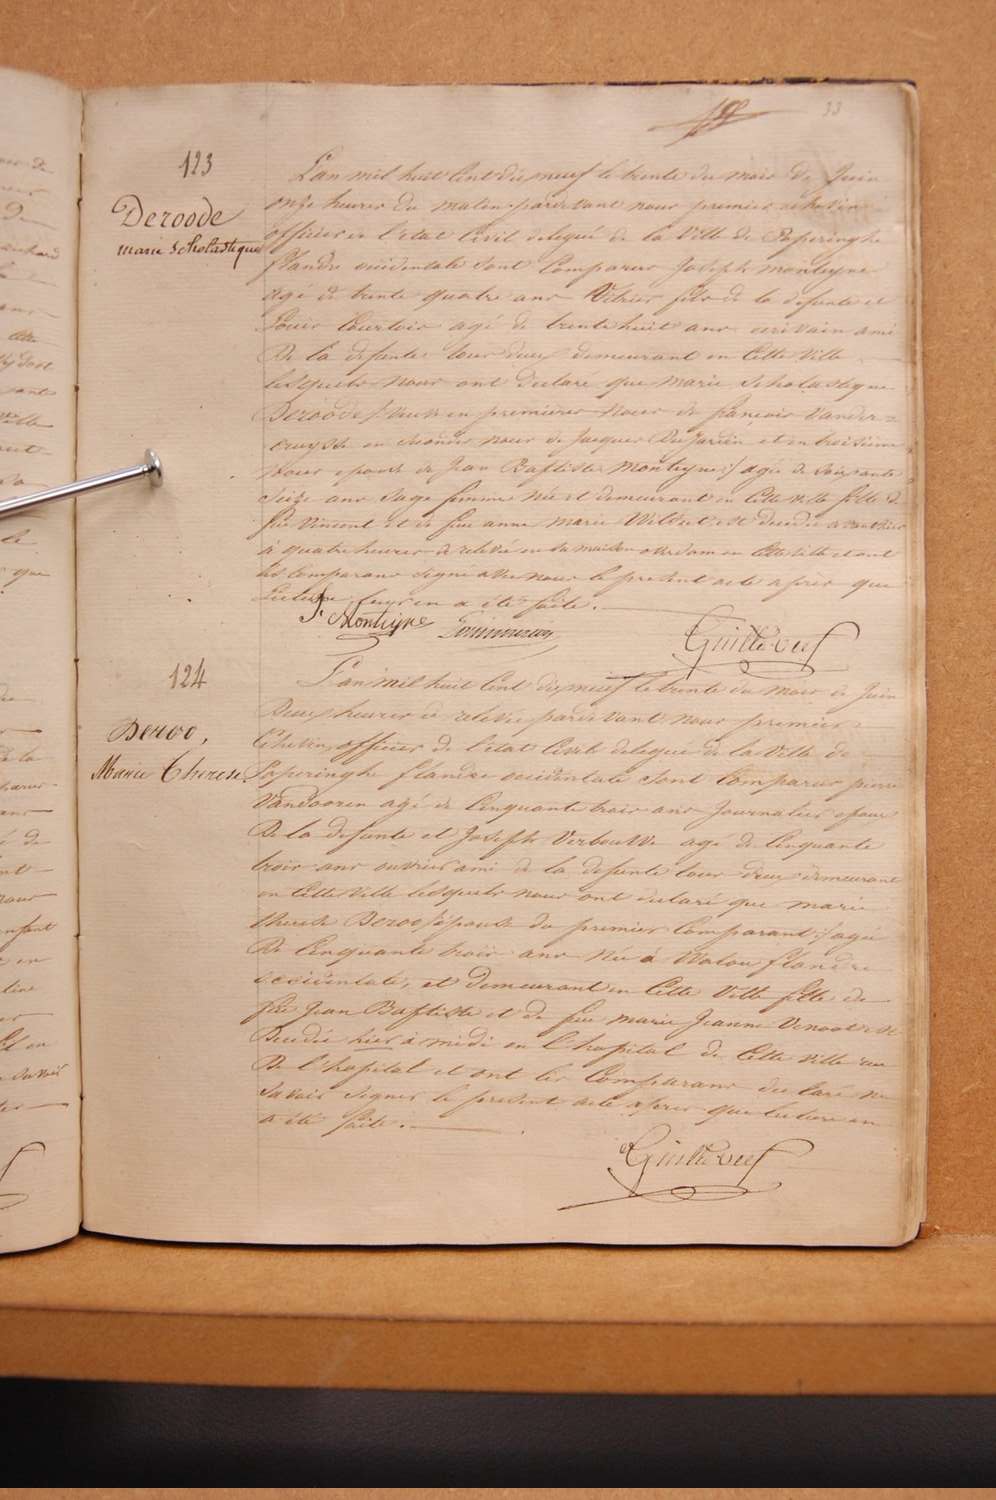 33
123
Deroode
marie Scholastique
L'an mil huit Cent dix neuf le trente du mois de Juin
onze heures du matin pardevant nous premier échevin
officier de l'état Civil delegué de la Ville de Poperinghe
flandre occidentale sont Comparus Joseph monteyne
agé de trente quatre ans Vitrier fils de la defunte et
Louis Courtois agé de trente huit ans ecrivain ami
De la defunte tous deux demeurant en Cette Ville
lesquels nous ont declaré que marie Scholastique
Deroode /: veuve en premieres Noces de françois Vander=
cruysse en secondes noces de Jacques Dujardin et en troisieme
Noces epouse de Jean Baptiste monteyne :/ agée de soixante
seize ans Sage femme Née et demeurant en Cette ville fille de
feu Vincent et de feue anne marie Wildert est decedée avant hier
à quatre heures de relevée en sa maison en Cette ville et ont
les Comparans signé avec nous le present acte après que
Lecture leur en a été faite.
J. Monteyne
Guillebert
124
Deroo,
Marie Therese.
L'an mil huit Cent dix neuf le trente du mois de Juin
Deux heures de relevée pardevant nous premier
Echevin, officier de l'état Civil delegué de la Ville de
Poperinghe flandre occidentale sont Comparus pierre
Vandooren agé de Cinquante trois ans Journalier epoux
De la defunte et Joseph Verbouwe agé de Cinquante
trois ans ouvrier ami de la defunte tous deux demeurant
en Cette Ville lesquels nous ont declaré que marie
therese Deroo /: épouse du premier Comparant :/ agée
De Cinquante trois ans Née à Watou flandre
occidentale, et demeurant en Cette Ville fille de
feu Jean Baptiste et de feue marie Jeanne Venoot est
Decedée hier à midi en l'hopital de Cette ville rue
De l'hopital et ont les Comparans declaré ne
Savoir signer le present acte apres que lecture en
a été faite.
Guillebert